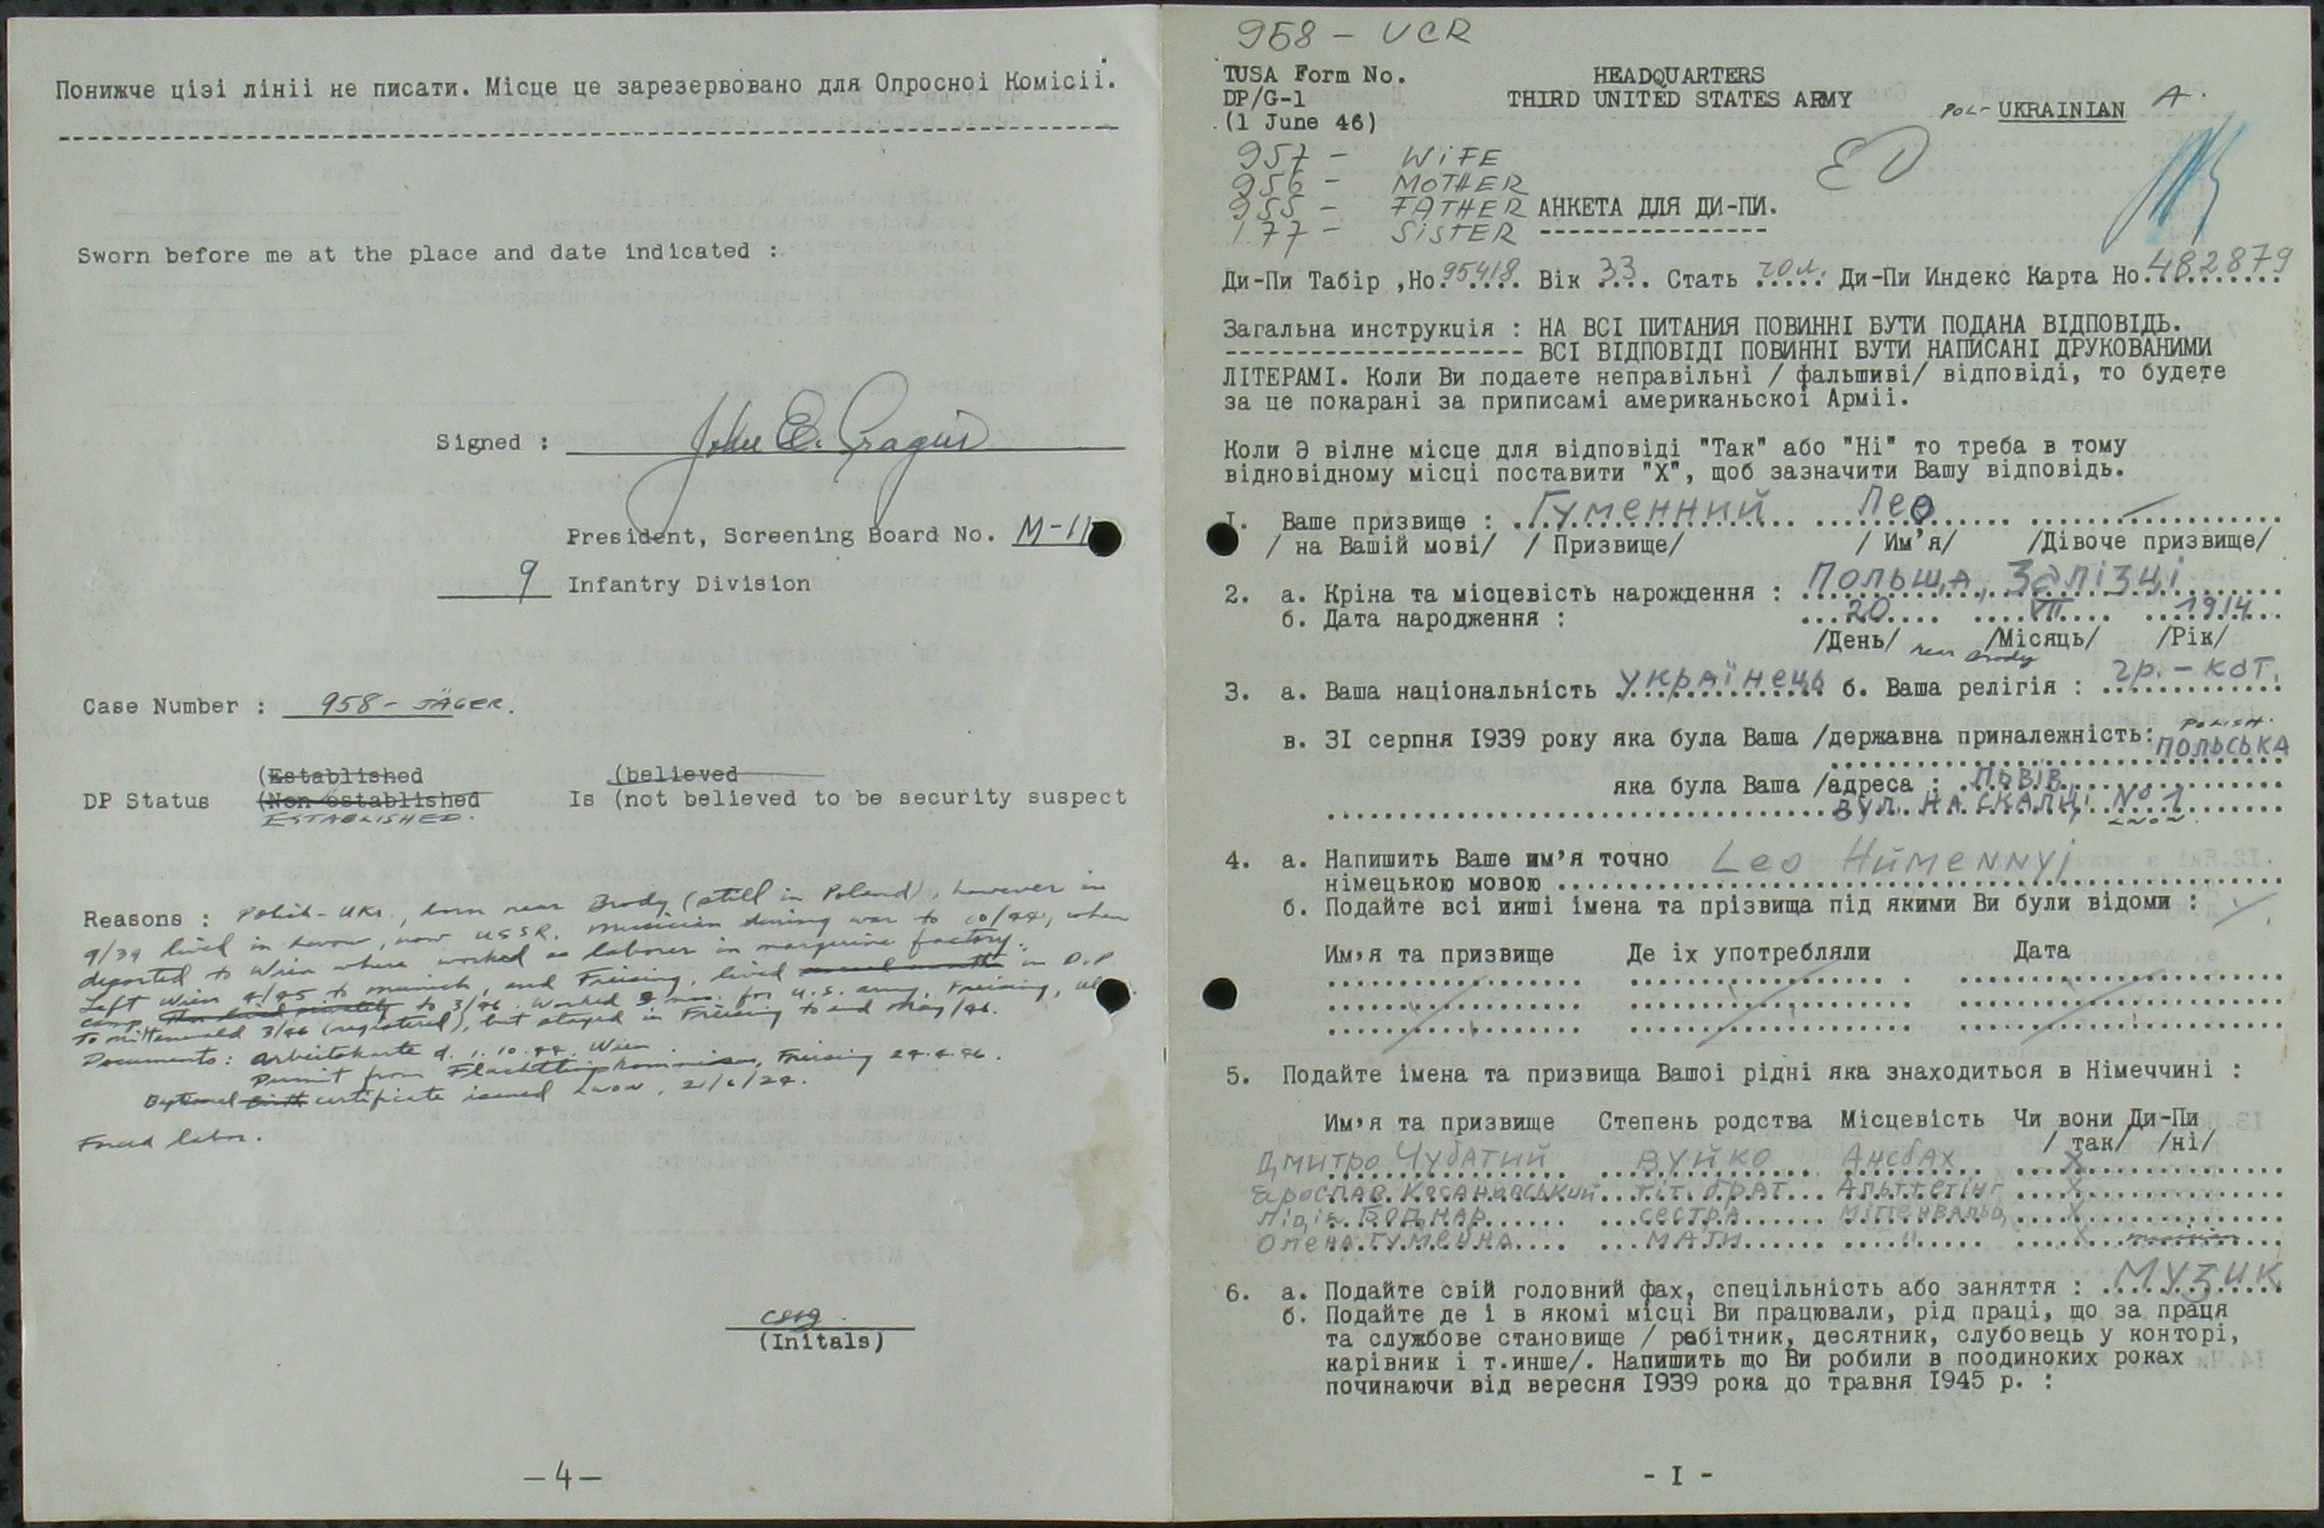 Понижче цієі лініі не писати. Місце це зарезервовано для Опросноі Комісіі.
Sworn before me at the place and date indicated :
Signed : John E.
President, Screening Board No. M-11
9 Infantry Division
Case Number : 958 - JÄGER.
(Established (believed
DP Status (Non-established Is (not believed to be security suspect
ESTABLISHED.
Reasons : Polish-Ukr., born near Brody (still in Poland), however in
9/39 lived in Lwow, now USSR. Musician during war to 10/44, when
deported to Wien where worked as laborer in margerine factory.
Left Wien 4/45 to Munich, and Freising, lived in D.P
camp to 3/46. Worked 2 mo. for U.S. army, Freising,
To Mittenwald 3/46 (registered), but stayed in Freising to end May/46.
Documents: Arbeitskarte d. 1.10.44. Wien
Permit from Freising 24.4.46.
certificate issued Lwow, 21/6/24.
Forced labor.
(Initals)
-4-
958 - UCR
TUSA Form No. HEADQUARTERS
DP/G-1 THIRD UNITED STATES ARMY POL- UKRAINIAN A.
(1 June 46)
957 - WIFE ED
956 - MOTHER
955 - FATHER АНКЕТА ДЛЯ ДИ-ПИ.
177 - SISTER
Ди-Пи Табір ,Но.95418. Вік 33. Стать чол. Ди-Пи Индекс Карта Но.482879
Загальна инструкція : НА ВСІ ПИТАНИЯ ПОВИННІ БУТИ ПОДАНА ВІДПОВІДЬ.
ВСІ ВІДПОВІДІ ПОВИННІ БУТИ НАПИСАНІ ДРУКОВАНИМИ
ЛІТЕРАМІ. Коли Ви подаете неправільні / фальшиві/ відповіді, то будете
за це покарані за приписамі американьскоі Арміі.
Коли Э вілне місце для відповіді "Так" або "Ні" то треба в тому
відновідному місці поставити "X", щоб зазначити Вашу відповідь.
I. Ваше призвище : Гуменний Лео —
/ на Вашій мові/ / Призвище/ / Им'я/ /Дівоче призвище/
2. а. Кріна та місцевість нарождення : Польща, Залізці
б. Дата народження : 20 VII 1914
/День/ /Місяць/ /Рік/
near Brody
3. а. Ваша національність українець б. Ваша релігія : гр.-кат.
POLISH.
в. 3I серпня I939 року яка була Ваша /державна приналежність: польська
яка була Ваша /адреса : Львів
вул. на Скалці № 1
LWOW.
4. а. Напишить Ваше им'я точно Leo Humennyj
німецькою мовою
б. Подайте всі инші імена та прізвища під якими Ви були відоми :
Им'я та призвище Де іх употребляли Дата
5. Подайте імена та призвища Вашоі рідні яка знаходиться в Німеччині :
Им'я та призвище Степень родства Місцевість Чи вони Ди-Пи
/ так/ /ні/
Дмитро Чубатий вуйко Ансбах X
Ярослав тіт. брат Альттетінг X
Лідія Боднар сестра Міттенвальд X
Олена Гуменна мати " X
6. а. Подайте свій головний фах, спецільність або заняття : Музик
б. Подайте де і в якомі місці Ви працювали, рід праці, що за праця
та службове становище / рабітник, десятник, слубовець у конторі,
карівник і т.инше/. Напишить що Ви робили в поодиноких роках
починаючи від вересня I939 рока до травня I945 р. :
- I -